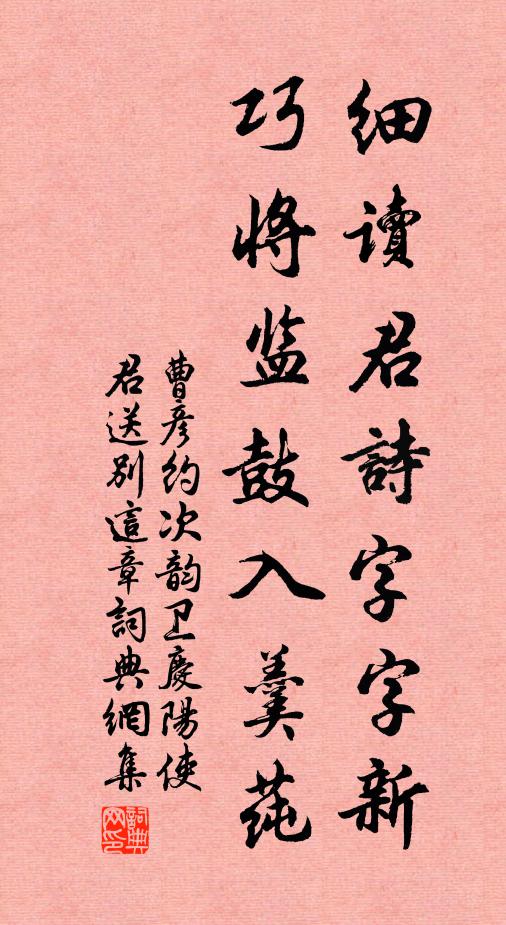 细讀君詩字字新
巧将监鼓入羹莼
曹彦约次韵卫慶陽使
君送别這章詞典網集
詞典网印